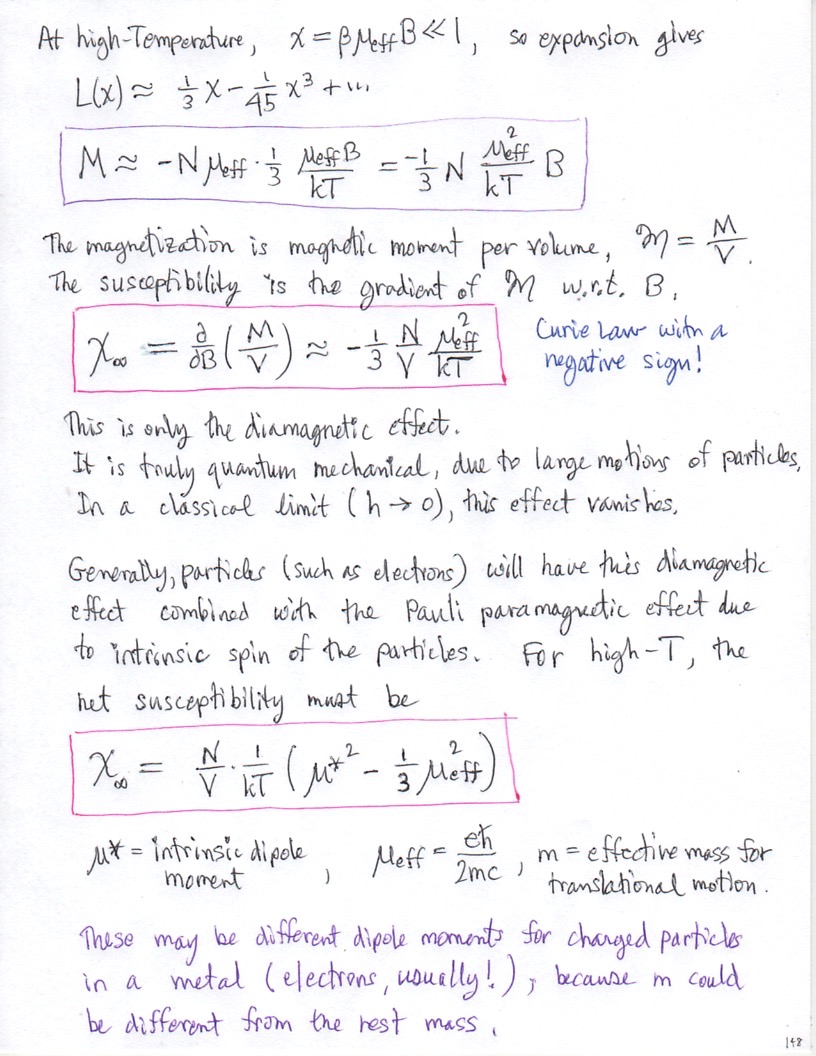 At high-Temperature, x = βμeff B ≪ 1, so expansion gives
L(x) ≈ 1/3 x − 1/45 x³ + ...
M ≈ −N μeff · 1/3 μeff B/kT = −1/3 N μ²eff/kT B
The magnetization is magnetic moment per volume, ℳ = M/V.
The susceptibility is the gradient of ℳ w.r.t. B.
χ∞ = ∂/∂B (M/V) ≈ −1/3 N/V μ²eff/kT
Curie Law with a
negative sign!
This is only the diamagnetic effect.
It is truly quantum mechanical, due to large motions of particles,
In a classical limit (h → 0), this effect vanishes.
Generally, particles (such as electrons) will have this diamagnetic
effect combined with the Pauli paramagnetic effect due
to intrinsic spin of the particles. For high-T, the
net susceptibility must be
χ∞ = N/V · 1/kT (μ*² − 1/3 μ²eff)
μ* = intrinsic dipole
moment,
μeff = eħ/2mc,
m = effective mass for
translational motion.
These may be different dipole moments for charged particles
in a metal (electrons, usually!), because m could
be different from the rest mass.
148